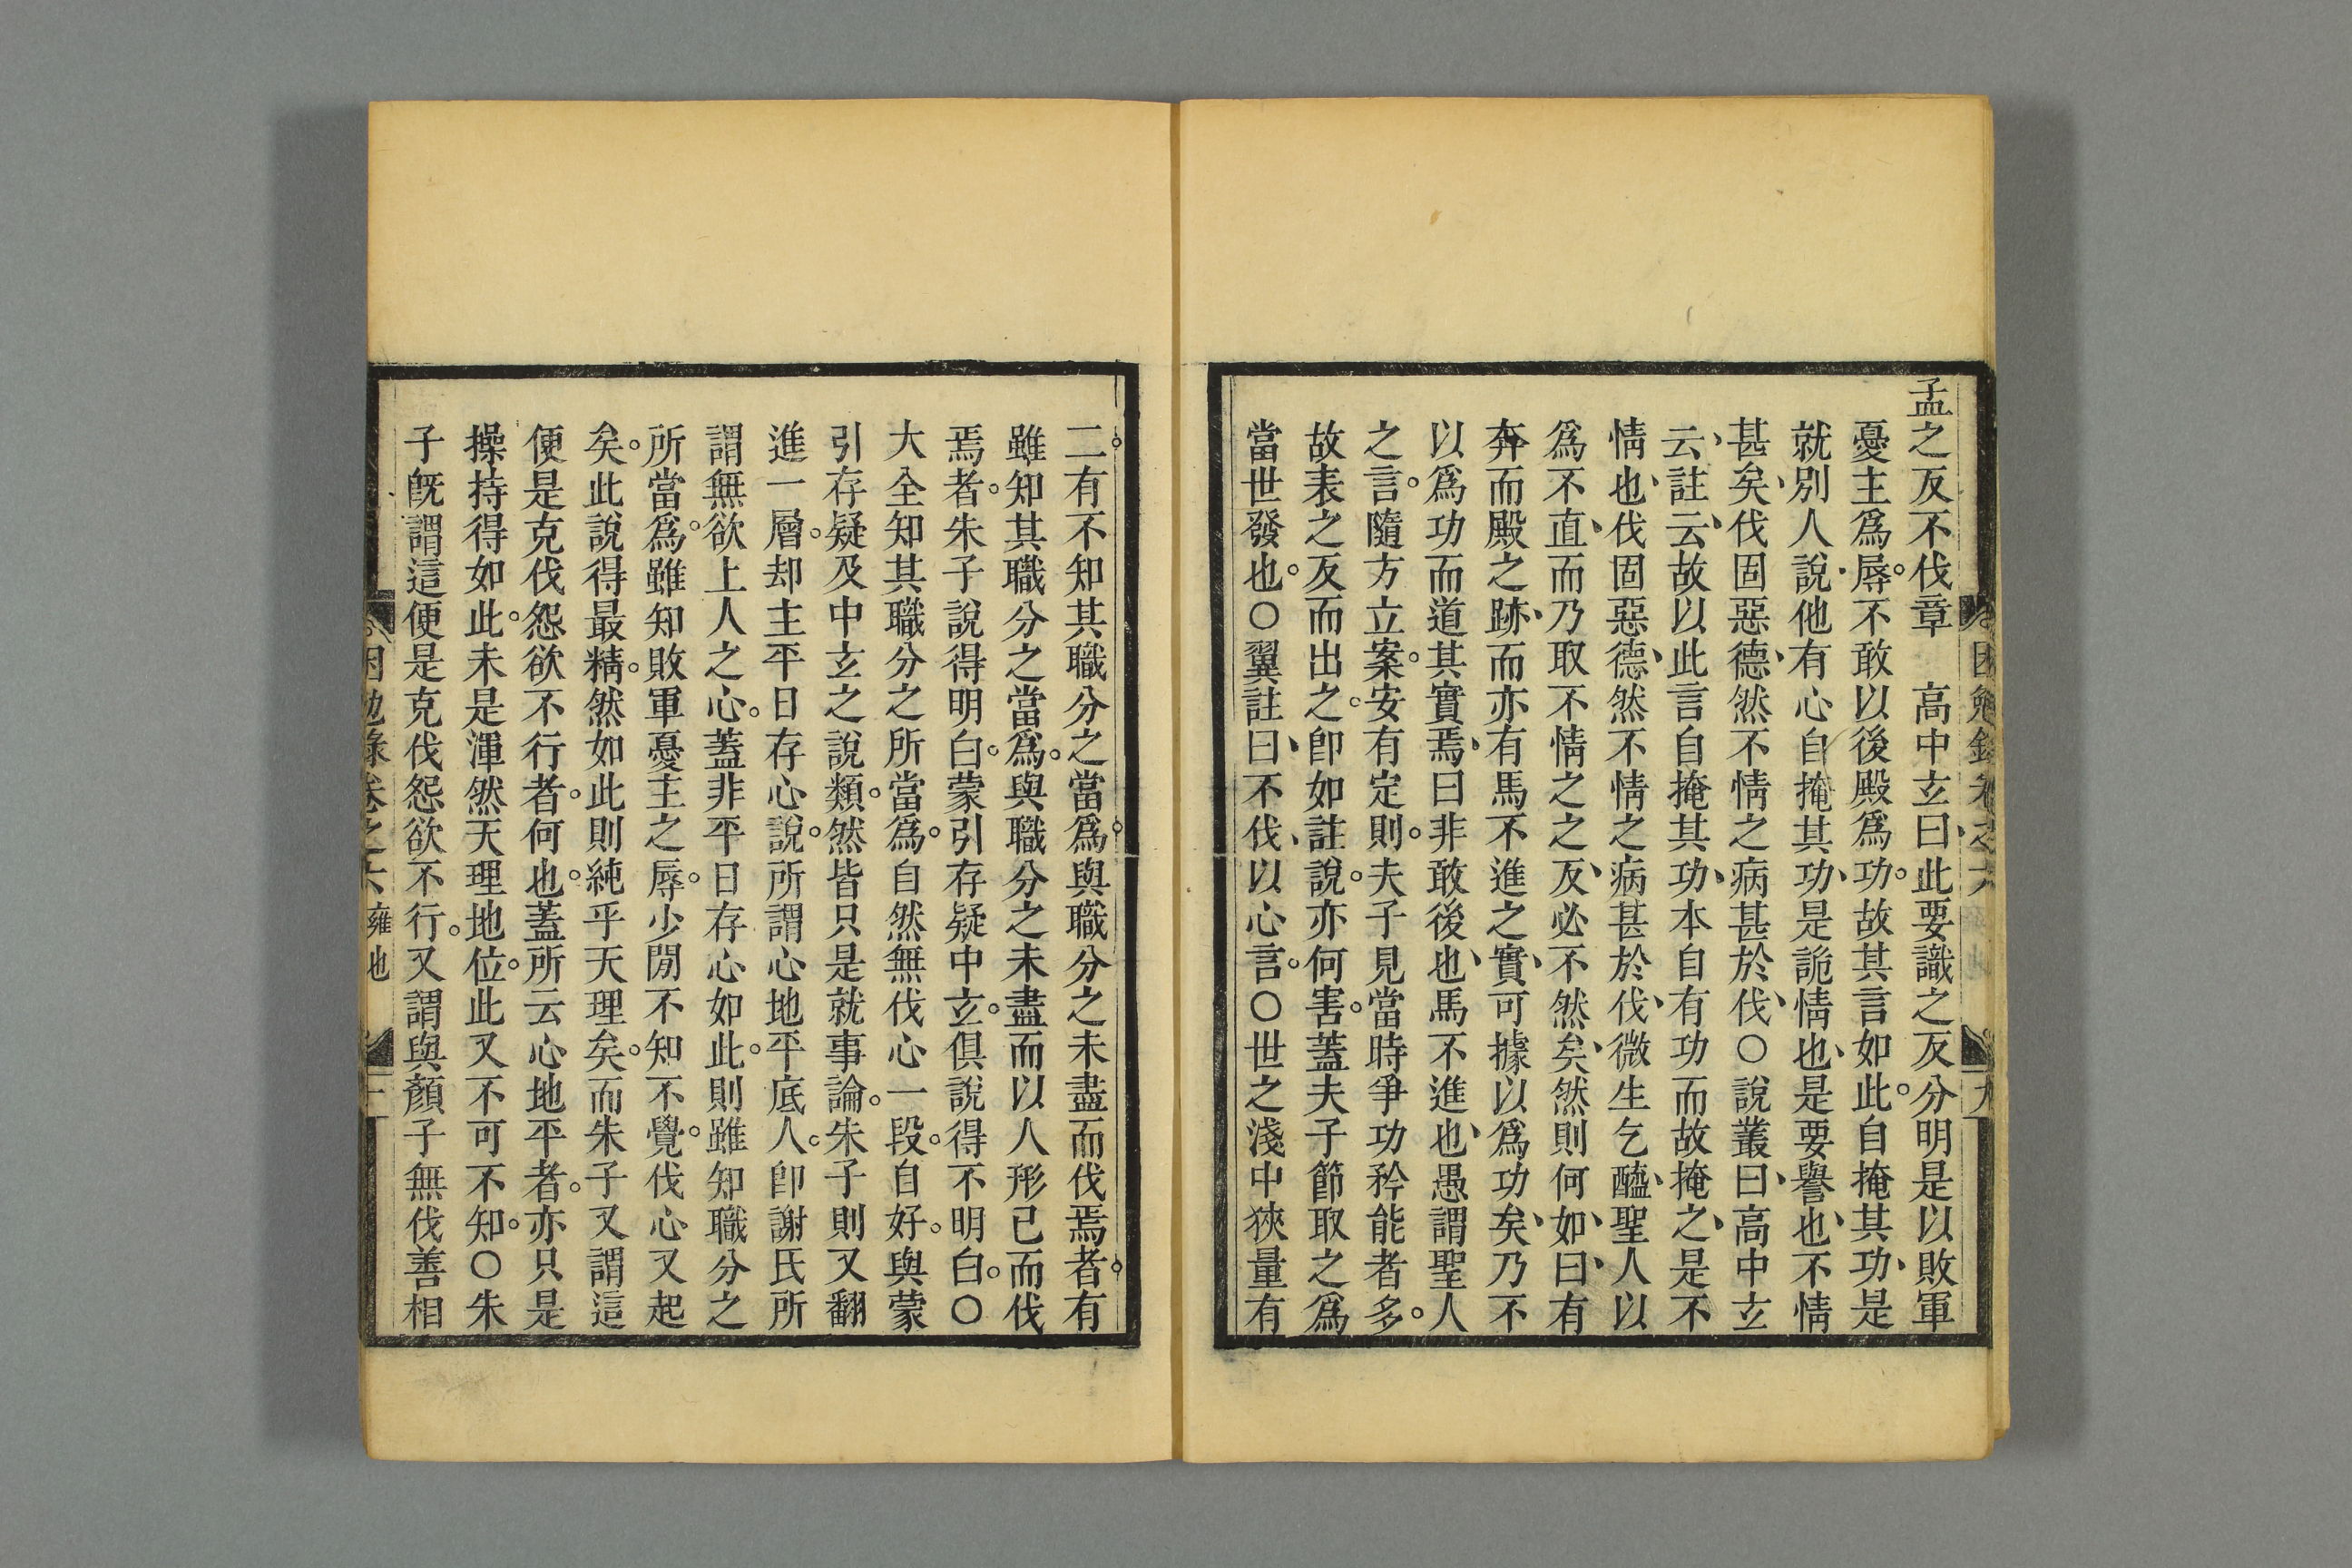 孟之反不伐章　高中玄曰、此要識之反分明是以敗軍
憂主爲辱。不敢以後殿爲功。故其言如此。自掩其功、是
就別人說、他有心自掩其功、是詭情也、是要譽也、不情
甚矣、伐固惡德、然不情之病甚於伐、○說叢曰、高中玄
云、註云、故以此言自掩其功、本自有功而故掩之、是不
情也、伐固惡德、然不情之病甚於伐、微生乞醯、聖人以
爲不直、而乃取不情之之反、必不然矣、然則何如、曰、有
奔而殿之跡、而亦有馬不進之實、可據以爲功矣、乃不
以爲功而道其實焉、曰非敢後也、馬不進也、愚謂聖人
之言。隨方立案。安有定則。夫子見當時爭功矜能者多。
故表之反而出之。卽如註說。亦何害。蓋夫子節取之爲
當世發也。○翼註曰、不伐、以心言。○世之淺中狹量有
二有不知其職分之當爲與職分之未盡而伐焉者有
雖知其職分之當爲。與職分之未盡而以人形已而伐
焉者。朱子說得明白。蒙引存疑中玄。俱說得不明白。○
大全知其職分之所當爲。自然無伐心一段。自好。與蒙
引存疑及中玄之說類。然皆只是就事論。朱子則又翻
進一層。却主平日存心說。所謂心地平底人。卽謝氏所
謂無欲上人之心。蓋非平日存心如此。則雖知職分之
所當爲。雖知敗軍憂主之辱。少閒不知不覺。伐心又起
矣。此說得最精。然如此則純乎天理矣。而朱子又謂這
便是克伐怨欲不行者。何也。蓋所云心地平者。亦只是
操持得如此。未是渾然天理地位。此又不可不知。○朱
子旣謂這便是克伐怨欲不行。又謂與顏子無伐善相
困勉錄卷之六 雍也